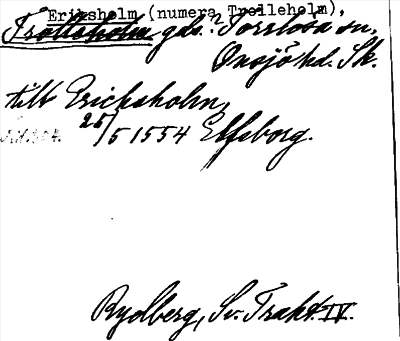 Eriksholm (numera Trolleholm),
Trolleholm gds. i Torrlösa sn,
Onsjö hd. Sk.
till Erichsholm,
25/5 1554 Elfsborg.
Rydberg, Sv. Trakt. IV.